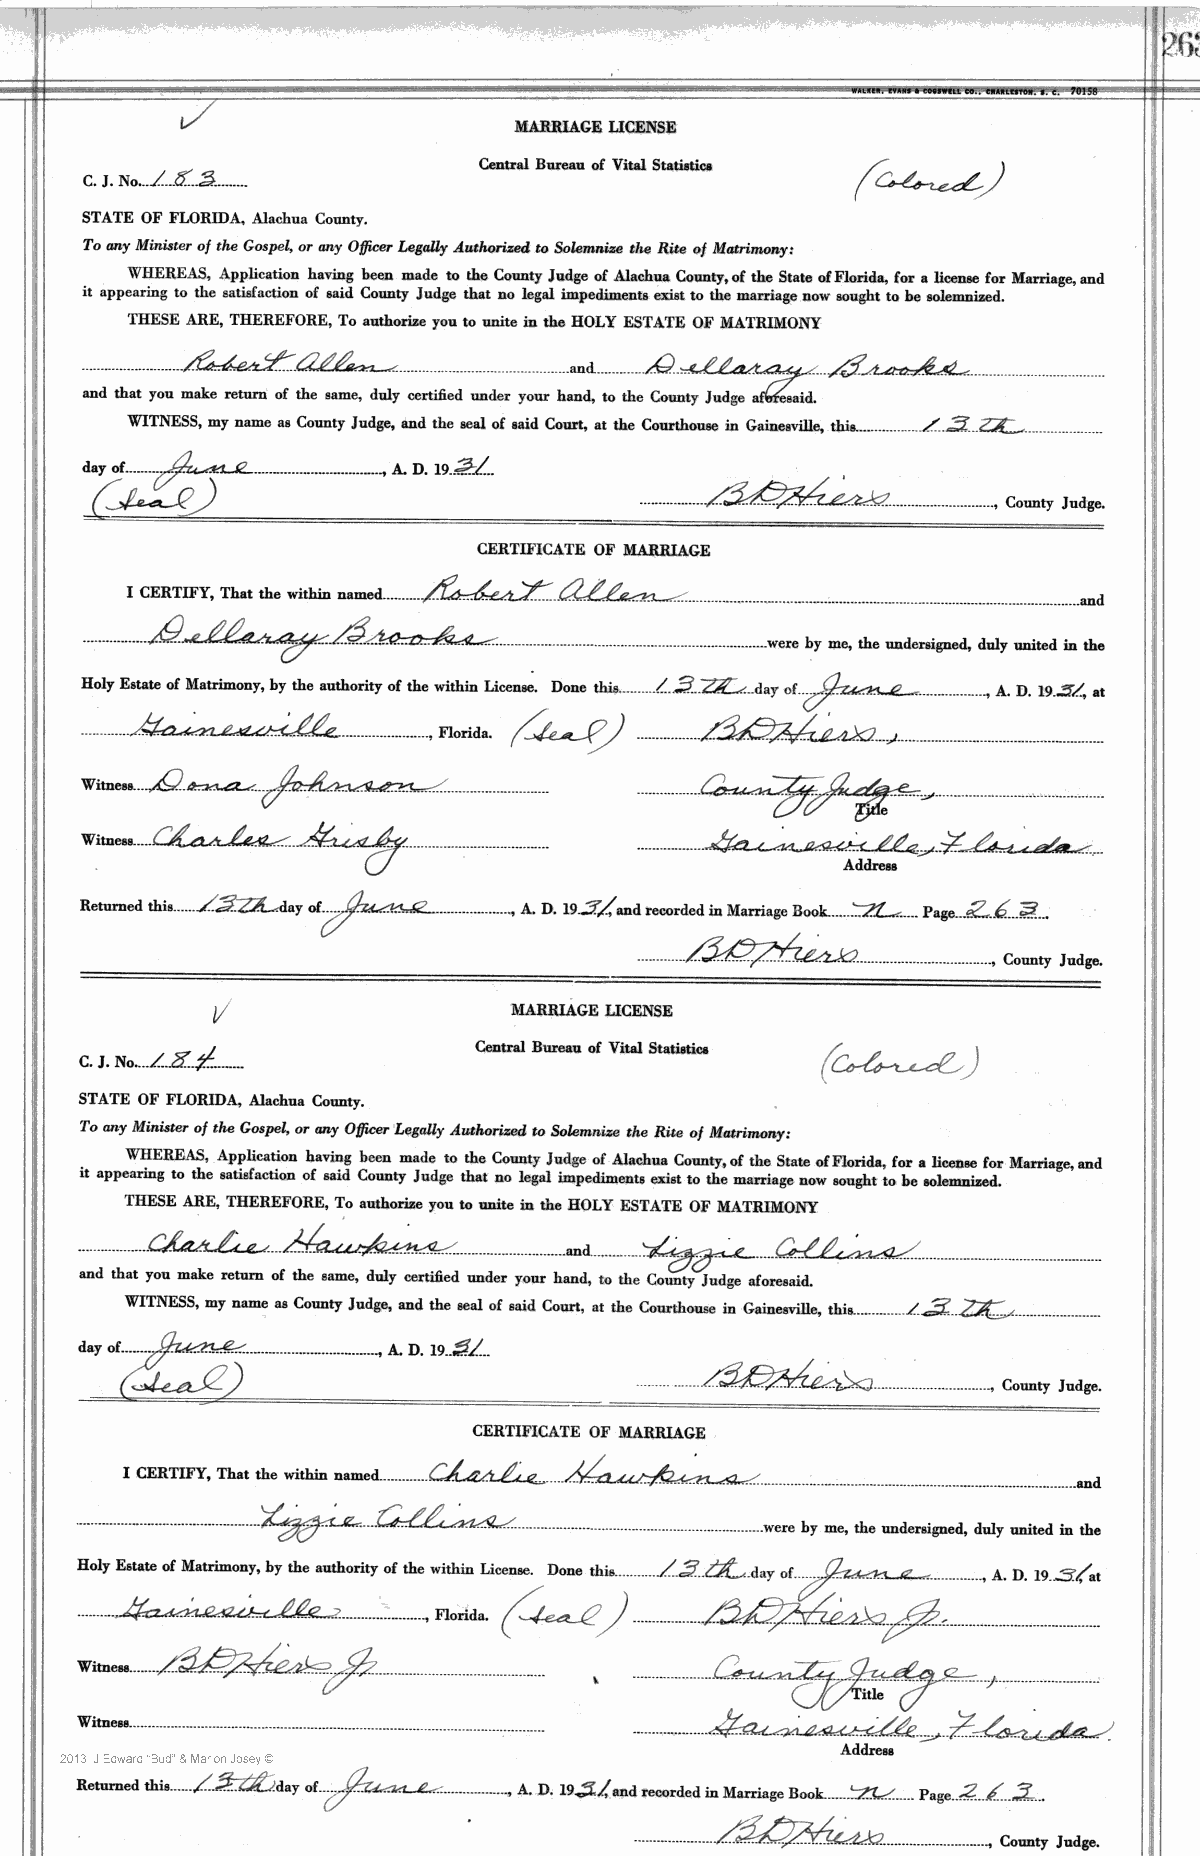 263
WALKER, EVANS & COGSWELL CO., CHARLESTON, S. C. 70158
MARRIAGE LICENSE
Central Bureau of Vital Statistics
C. J. No. 183 (Colored)
STATE OF FLORIDA, Alachua County.
To any Minister of the Gospel, or any Officer Legally Authorized to Solemnize the Rite of Matrimony:
WHEREAS, Application having been made to the County Judge of Alachua County, of the State of Florida, for a license for Marriage, and
it appearing to the satisfaction of said County Judge that no legal impediments exist to the marriage now sought to be solemnized.
THESE ARE, THEREFORE, To authorize you to unite in the HOLY ESTATE OF MATRIMONY
Robert Allen and Dellaray Brooks
and that you make return of the same, duly certified under your hand, to the County Judge aforesaid.
WITNESS, my name as County Judge, and the seal of said Court, at the Courthouse in Gainesville, this 13th
day of June, A. D. 19 31
(Seal) BDHiers, County Judge.
CERTIFICATE OF MARRIAGE
I CERTIFY, That the within named Robert Allen and
Dellaray Brooks were by me, the undersigned, duly united in the
Holy Estate of Matrimony, by the authority of the within License. Done this 13th day of June, A. D. 19 31, at
Gainesville, Florida. (Seal) BDHiers,
Witness Dona Johnson County Judge,
Title
Witness Charles Grisby Gainesville, Florida
Address
Returned this 13th day of June, A. D. 19 31, and recorded in Marriage Book N Page 263.
BDHiers, County Judge.
MARRIAGE LICENSE
Central Bureau of Vital Statistics
C. J. No. 184 (Colored)
STATE OF FLORIDA, Alachua County.
To any Minister of the Gospel, or any Officer Legally Authorized to Solemnize the Rite of Matrimony:
WHEREAS, Application having been made to the County Judge of Alachua County, of the State of Florida, for a license for Marriage, and
it appearing to the satisfaction of said County Judge that no legal impediments exist to the marriage now sought to be solemnized.
THESE ARE, THEREFORE, To authorize you to unite in the HOLY ESTATE OF MATRIMONY
Charlie Hawkins and Lizzie Collins
and that you make return of the same, duly certified under your hand, to the County Judge aforesaid.
WITNESS, my name as County Judge, and the seal of said Court, at the Courthouse in Gainesville, this 13th
day of June, A. D. 19 31
(Seal) BDHiers, County Judge.
CERTIFICATE OF MARRIAGE
I CERTIFY, That the within named Charlie Hawkins and
Lizzie Collins were by me, the undersigned, duly united in the
Holy Estate of Matrimony, by the authority of the within License. Done this 13th day of June, A. D. 19 31, at
Gainesville, Florida. (Seal) BDHiers Jr.
Witness BDHiers Jr County Judge,
Title
Witness Gainesville, Florida.
Address
2013 J Edward "Bud" & Marion Josey ©
Returned this 13th day of June, A. D. 19 31, and recorded in Marriage Book N Page 263.
BDHiers, County Judge.